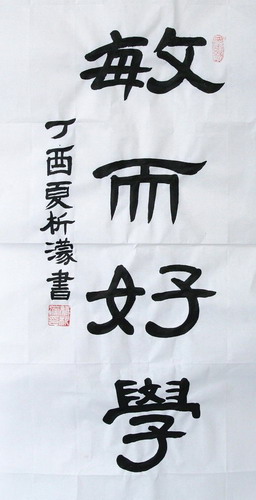 敏而好學
丁酉夏析濛書